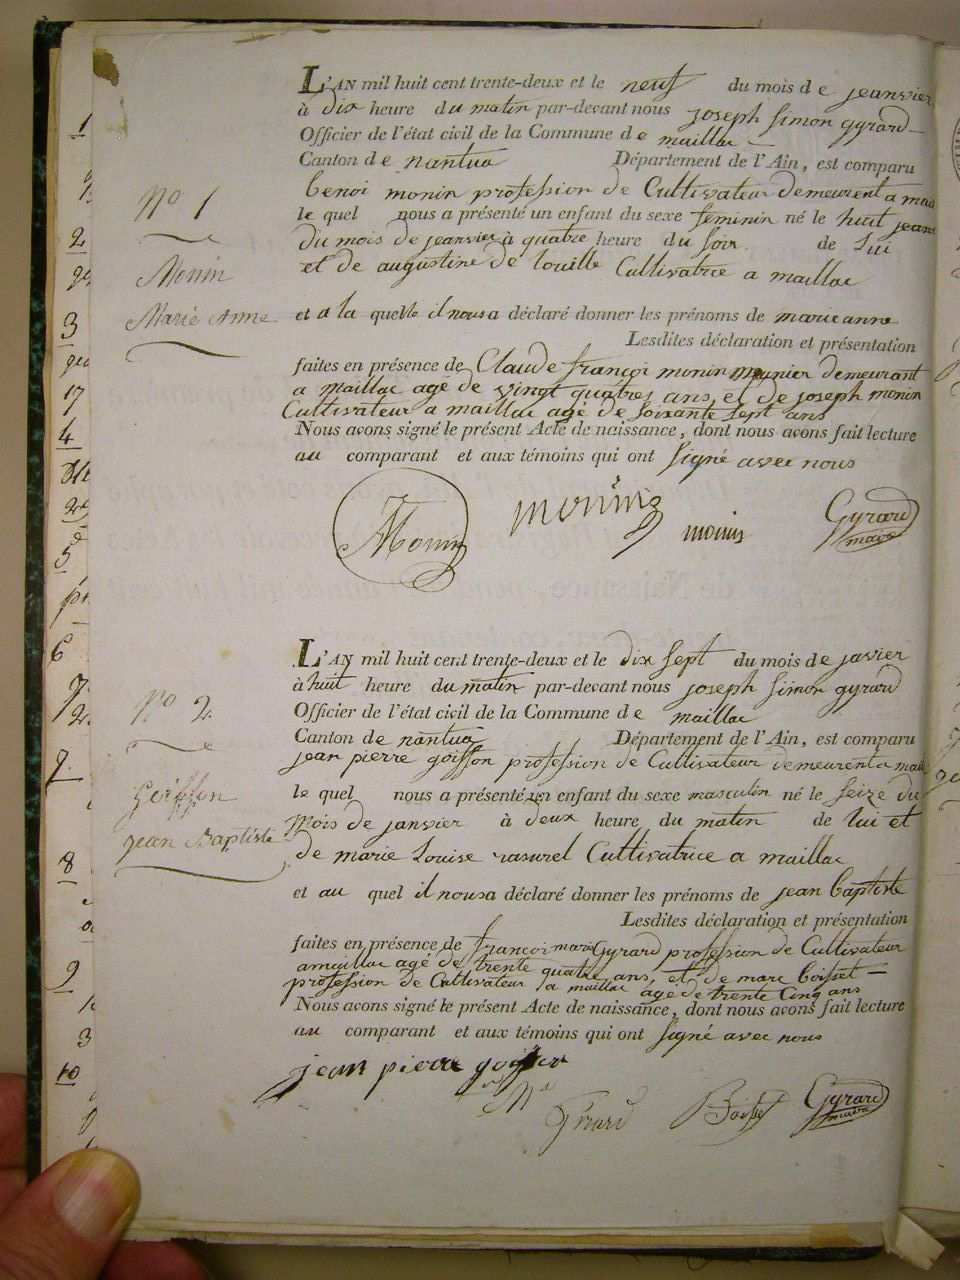 L'AN mil huit cent trente-deux et le neuf du mois de jeanvier
à dix heure du matin par-devant nous joseph Simon gyrard
Officier de l'état civil de la Commune de maillac
Canton de nantua Département de l'Ain, est comparu
benoi monin profession de Cultivateur demeurent a mail
le quel nous a présenté un enfant du sexe feminin né le huit jean
Du mois de jeanvier à quatre heure du soir de Lui
et de augustine de louille Cultivatrice a maillac
et a la quelle il nous a déclaré donner les prénoms de marie anne
Lesdites déclaration et présentation
faites en présence de Claude françoi monin meunier demeurant
a maillac agé de vingt quatres ans et de joseph monin
Cultivateur a maillac agé de soixante sept ans
Nous avons signé le présent Acte de naissance, dont nous avons fait lecture
au comparant et aux témoins qui ont signé avec nous
No 1
Monin
Marie Anne
Monin monin monin Gyrard
maire
L'AN mil huit cent trente-deux et le dix sept du mois de javier
à huit heure du matin par-devant nous joseph Simon gyrard
Officier de l'état civil de la Commune de maillac
Canton de nantua Département de l'Ain, est comparu
jean pierre goiffon profession de Cultivateur demeurent a mail
le quel nous a présenté un enfant du sexe masculin né le seize du
Mois de janvier à deux heure du matin de lui et
de marie Louise rasurel Cultivatrice a maillac
et au quel il nous a déclaré donner les prénoms de jean baptiste
Lesdites déclaration et présentation
faites en présence de françoi marie Gyrard profession de Cultivateur
a maillac agé de trente quatre ans, et de marc boisset
profession de Cultivateur a maillac agé de trente Cinq ans
Nous avons signé le présent Acte de naissance, dont nous avons fait lecture
au comparant et aux témoins qui ont signé avec nous
No 2
Goiffon
jean Baptiste
jean pierre
Girard Gyrard
maire
1
2
3
17
4
5
6
8
9
3
10